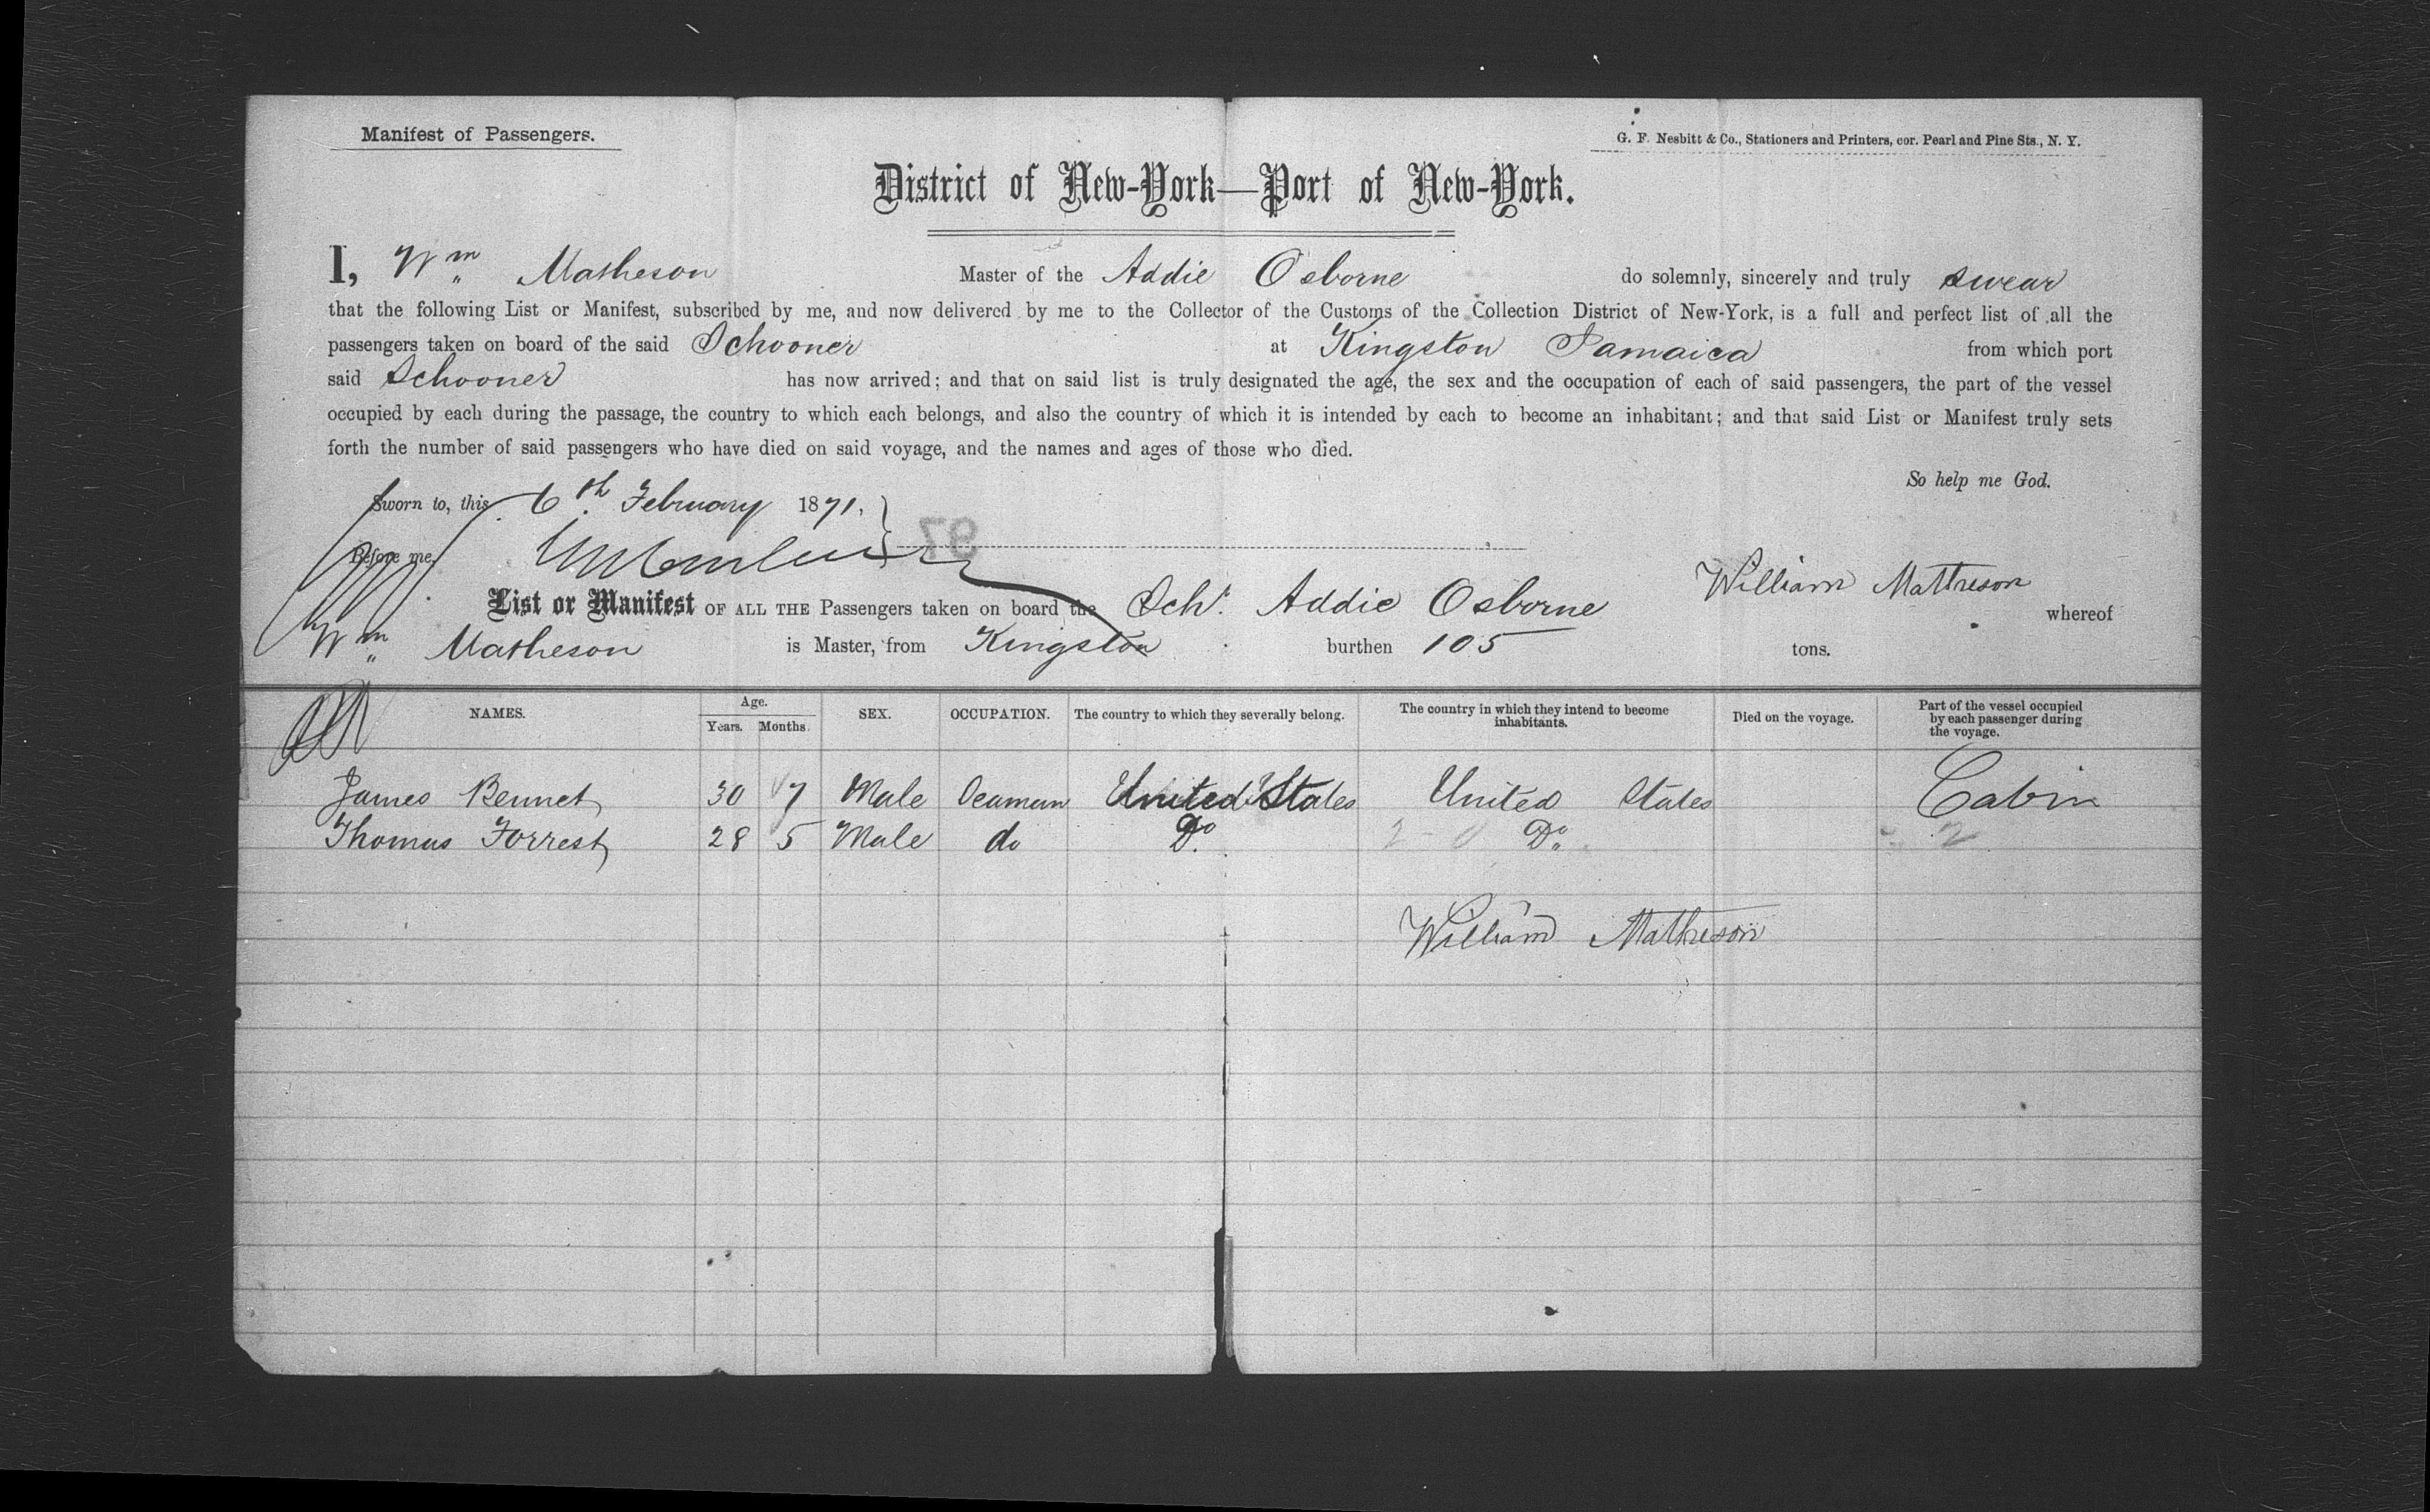 Manifest of Passengers.
G. F. Nesbitt & Co., Stationers and Printers, cor. Pearl and Pine Sts., N. Y.
District of New-York—Port of New-York.
I, Wm Matheson Master of the Addie Osborne do solemnly, sincerely and truly swear
that the following List or Manifest, subscribed by me, and now delivered by me to the Collector of the Customs of the Collection District of New-York, is a full and perfect list of all the
passengers taken on board of the said Schooner at Kingston Jamaica from which port
said Schooner has now arrived; and that on said list is truly designated the age, the sex and the occupation of each of said passengers, the part of the vessel
occupied by each during the passage, the country to which each belongs, and also the country of which it is intended by each to become an inhabitant; and that said List or Manifest truly sets
forth the number of said passengers who have died on said voyage, and the names and ages of those who died.
So help me God.
Sworn to, this 6th February 1871,
97
Before me,
William Matheson
List or Manifest OF ALL THE Passengers taken on board the Schr. Addie Osborne whereof
Wm Matheson is Master, from Kingston burthen 105 tons.
NAMES. Age. Years. Months. SEX. OCCUPATION. The country to which they severally belong. The country in which they intend to become inhabitants. Died on the voyage. Part of the vessel occupied by each passenger during the voyage.
James Bennet 30 7 Male Seaman United States United States Cabin
Thomas Forrest 28 5 Male do Do 2 0 Do 2
William Matheson